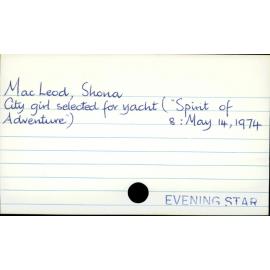 MacLeod, Shona
City girl selected for yacht ("Spirit of
Adventure") 8: May 14, 1974
EVENING STAR